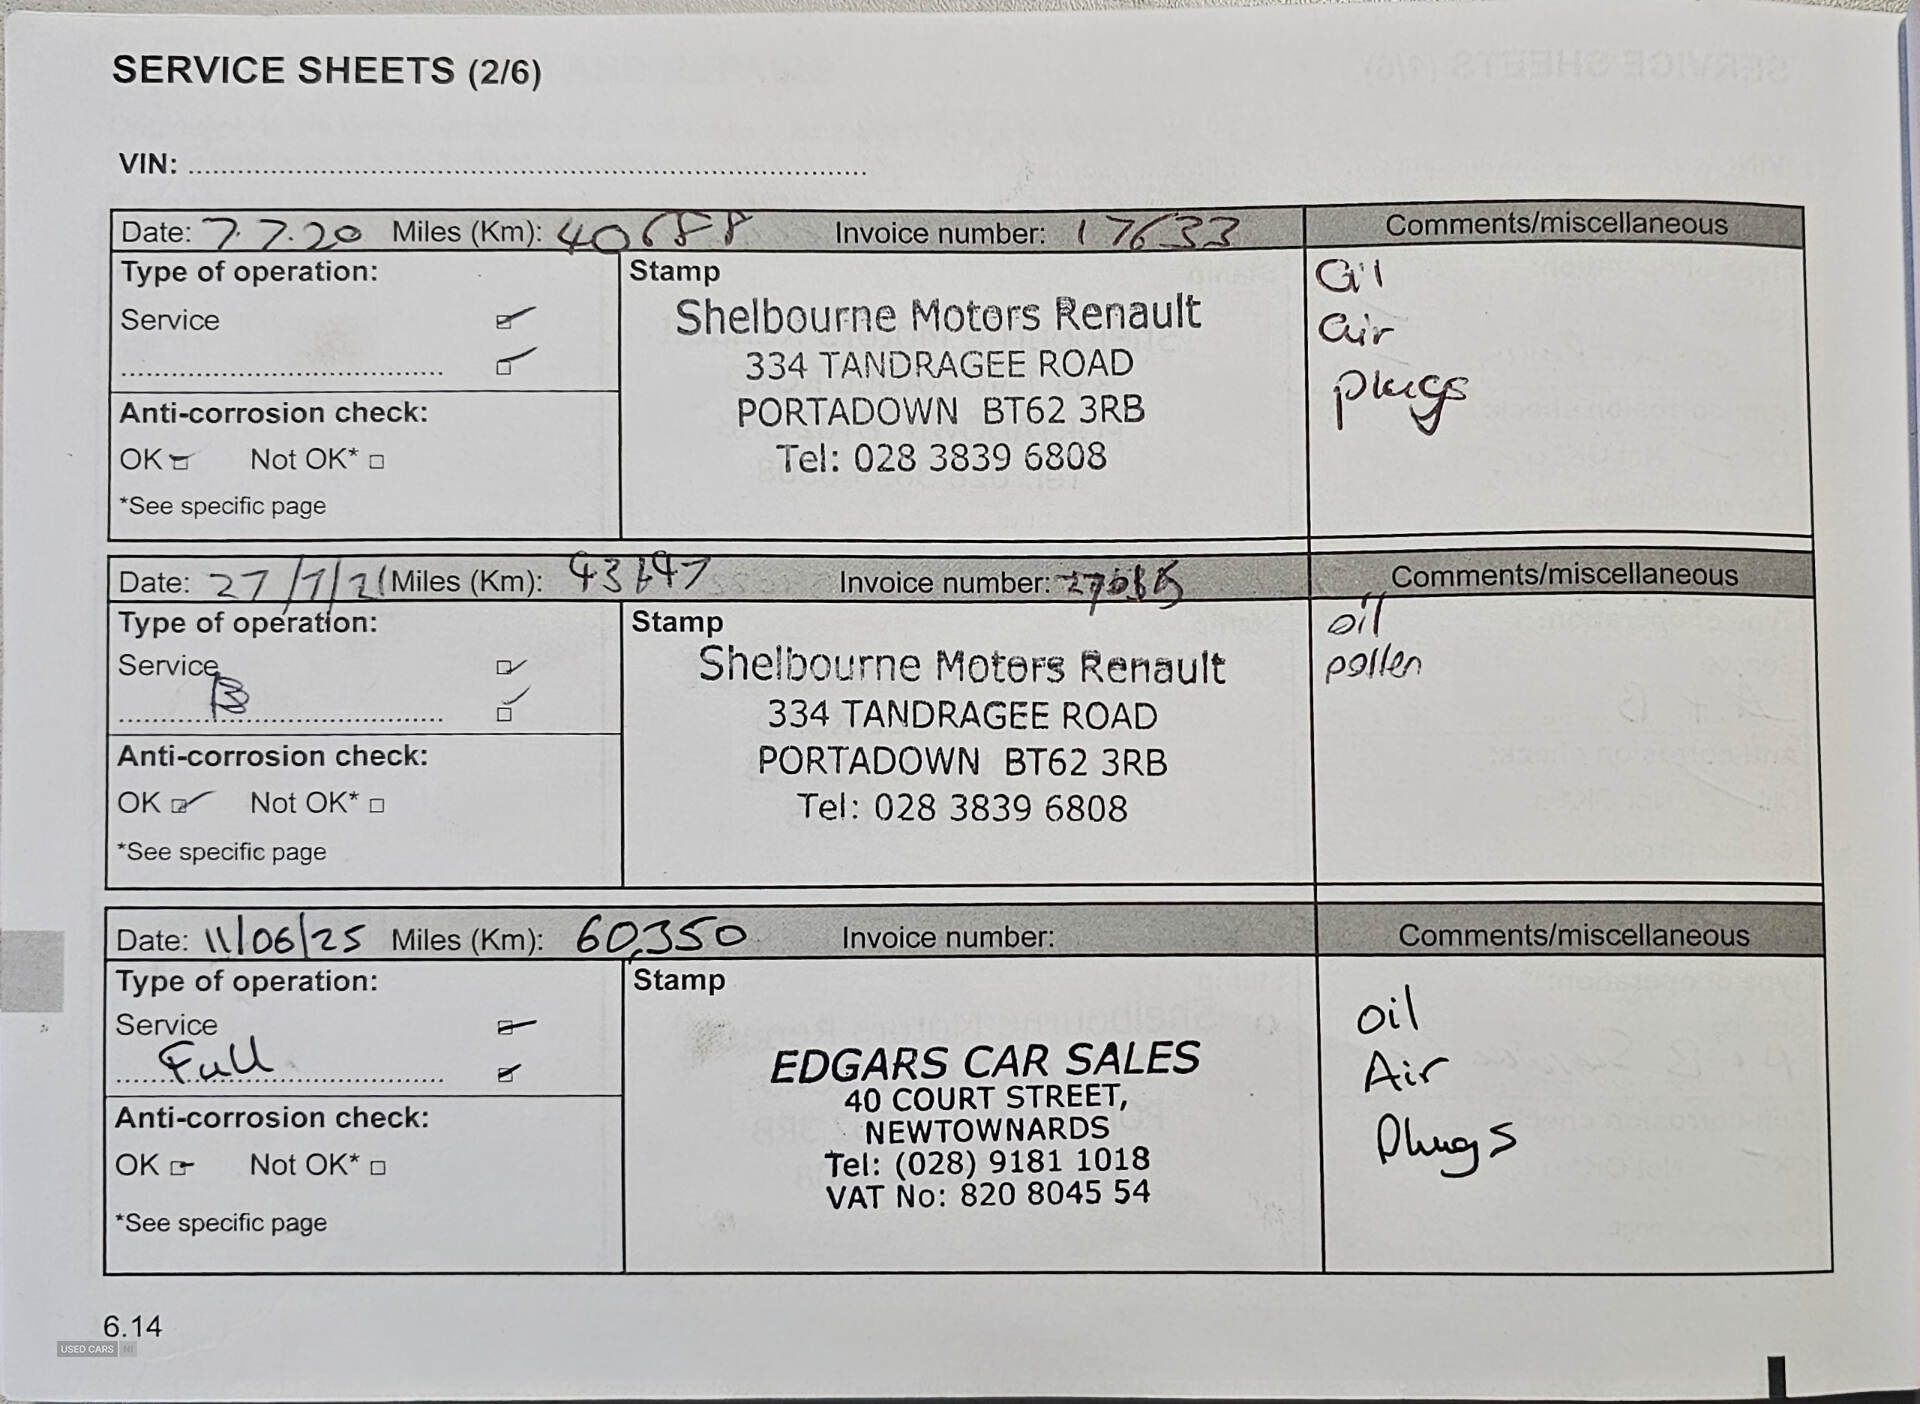 SERVICE SHEETS (2/6)
VIN:
Date: 7.7.20 Miles (Km): 40688 Invoice number: 17633 Comments/miscellaneous
Type of operation:
Service
Anti-corrosion check:
OK Not OK*
*See specific page
Stamp
Shelbourne Motors Renault
334 TANDRAGEE ROAD
PORTADOWN BT62 3RB
Tel: 028 3839 6808
Oil
air
plugs
Date: 27/7/21 Miles (Km): Invoice number: Comments/miscellaneous
Type of operation:
Service
B
Anti-corrosion check:
OK Not OK*
*See specific page
Stamp
Shelbourne Motors Renault
334 TANDRAGEE ROAD
PORTADOWN BT62 3RB
Tel: 028 3839 6808
oil
pollen
Date: 11/06/25 Miles (Km): 60,350 Invoice number: Comments/miscellaneous
Type of operation:
Service
Full
Anti-corrosion check:
OK Not OK*
*See specific page
Stamp
EDGARS CAR SALES
40 COURT STREET,
NEWTOWNARDS
Tel: (028) 9181 1018
VAT No: 820 8045 54
oil
Air
Plugs
6.14
USED CARS NI